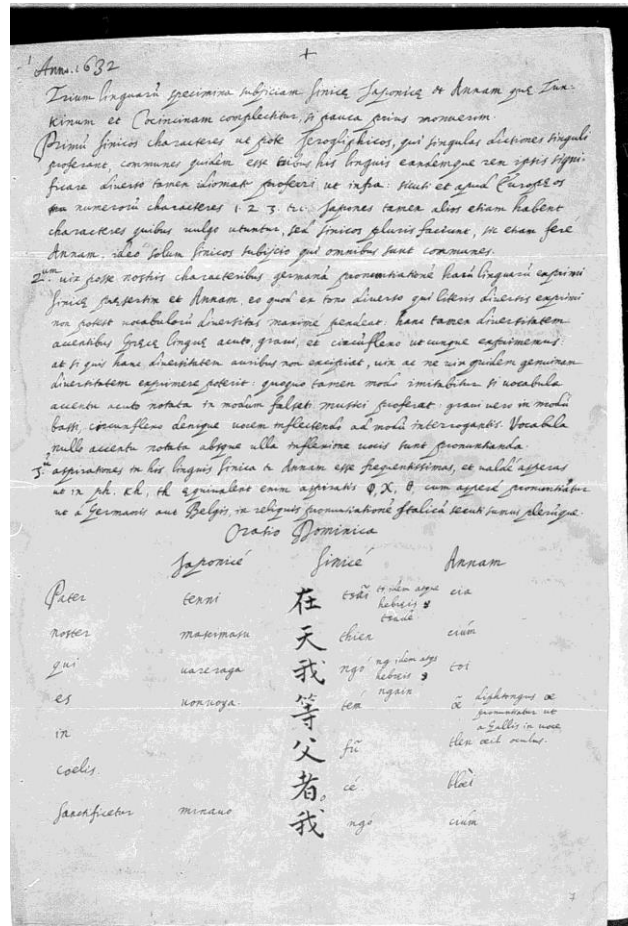 Anno. 1632
Trium linguarũ specimina subjiciam Sinicę Japonicę et Annam quę Tun-
kinum et Cocincinam complectitur, si pauca prius monuerim.
Primũ sinicos characteres ut pote hieroglyphicos, qui singulas dictiones singuli
proferant, communes quidem esse tribus his linguis eandemque rem ipsis signi-
ficare diverso tamen idiomate proferri ut infra. sicuti et apud Europęos
numerorũ characteres 1. 2. 3. Japones tamen alios etiam habent
characteres quibus vulgo utuntur, sed sinicos pluris faciunt, sic etiam ferè
Annam. ideo solum sinicos subijcio qui omnibus sunt communes.
2.um vix posse nostris characteribus germanã pronuntiationẽ harũ linguarũ exprimi
sinicę pręsertim et Annam, eo quod ex tono diverso qui literis diversis exprimi
non potest vocabulorũ diversitas maxime pendeat. hanc tamen diversitatem
accentibus Gręcę linguę acuto, gravi, et circũflexo utcunque exprimemus:
at si quis hanc diversitatem auribus non excipiat, vix ac ne vix quidem genuinam
diversitatem exprimere poterit. quoquo tamen modo imitabitur si vocabula
accentu acuto notata in modum falseti musici proferat. gravi vero in modũ
bassi, circumflexo denique vocem inflectendo ad modũ interrogantis. Vocabula
nullo accentu notata absque ulla inflexione vocis sunt pronuntianda.
3. aspirationes in his linguis sinica et Annam esse frequentissimas, et valdè asperas
ut in ph, kh, th ęquivalent enim aspiratis φ, χ, θ, cum asperè pronuntiãtur
ut a Germanis aut Belgis, in reliquis pronuntiatione Italicã secuti sumus plerũque.
Oratio Dominica
Japonicé Sinicé Annam
Pater tenni 在 tsãi idem atque hebreis cia
noster masimasu 天 thien ciúm
qui vareraga 我 ngò ng idem atque hebreis ngain toi
es vonvoya. 等 tem æ diphtongus æ pronuntiatur ut a Gallis in voce œil oculus.
in 父 fũ tlen
coelis. 者。 cé blòi
Sanctificetur minavo 我 ngo ciúm
7